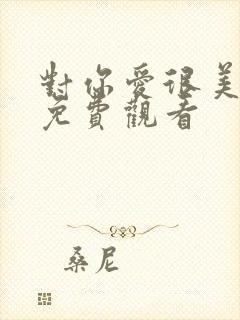 對你愛很美
免費觀看
桑尼